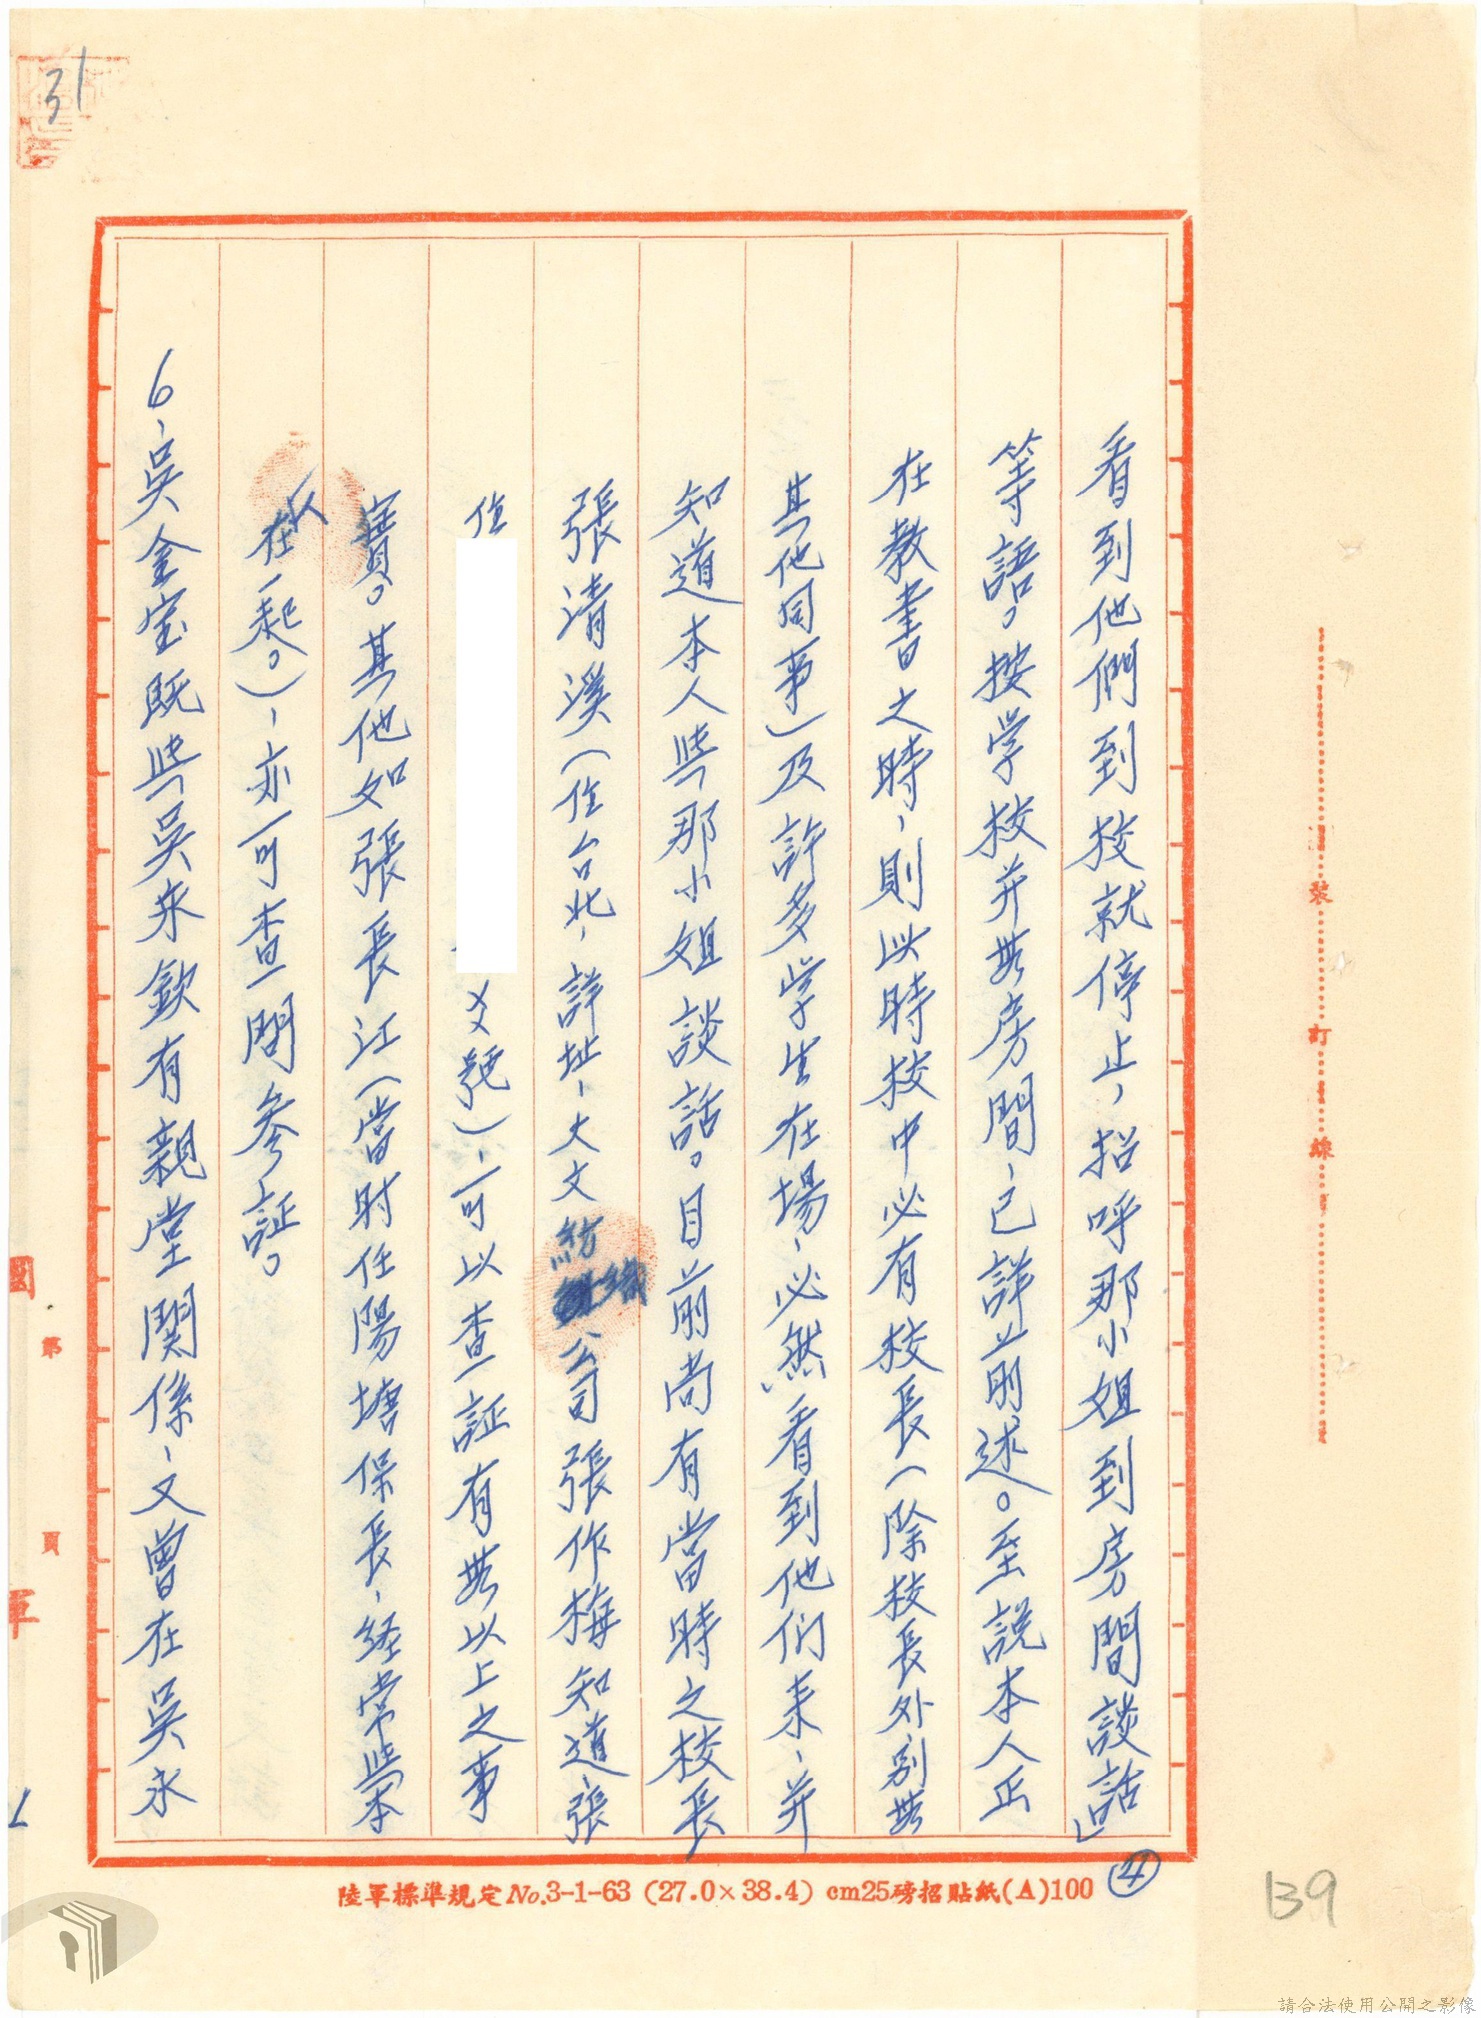 看到他們到校就停止，招呼那小姐到房間談話」
等語。按学校并無房間，已詳前述。至説本人正
在教書之時，則此時校中必有校長（除校長外，別無
其他同事）及許多学生在場，必然看到他们来，并
知道本人与那小姐談話。目前尚有當時之校長
張清溪（住台北，詳址，大文紡織公司張作梅知道，張
住
号）可以查証有無以上之事
實。其他如張長江（當时任陽塘保長，経常與本
人在一起。），亦可查問參証。
6、吳金宝既与吳来欽有親堂関係，又曾在吳永
31
④
139
陸軍標準規定No.3-1-63（27.0×38.4）cm25磅招貼紙(A)100
裝
訂
線
國
第
頁
軍
請合法使用公開之影像